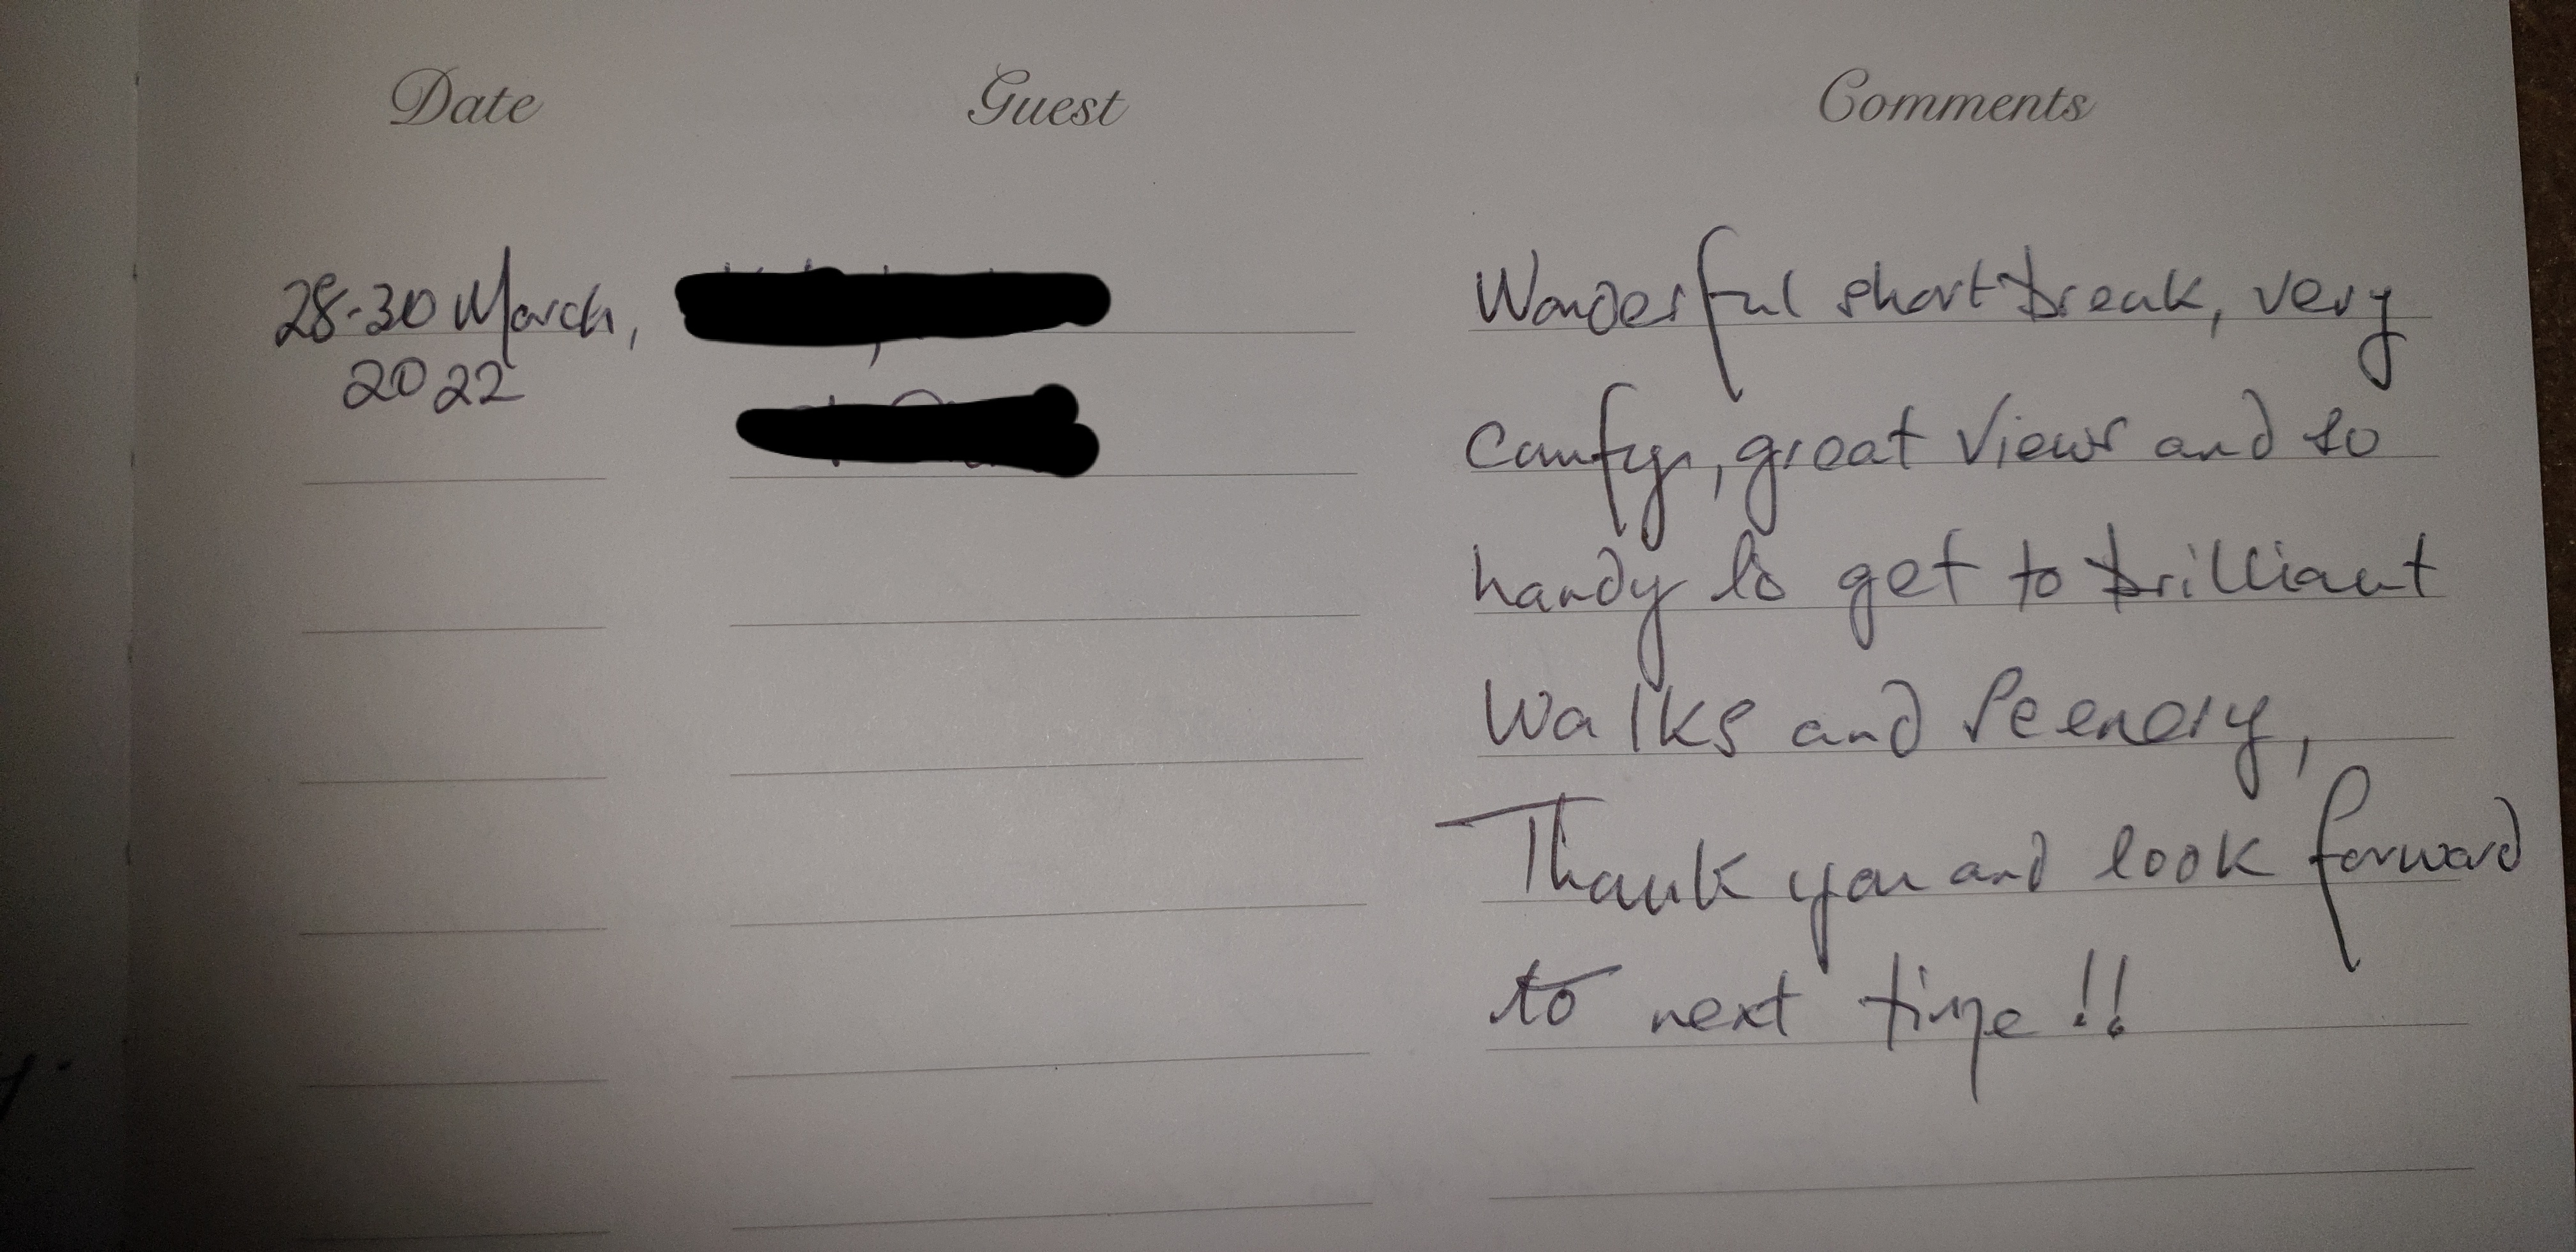 Date Guest Comments
28-30 March,
2022
Wonderful short break, very
comfy, great views and so
handy to get to brilliant
walks and scenery,
Thank you and look forward
to next time!!